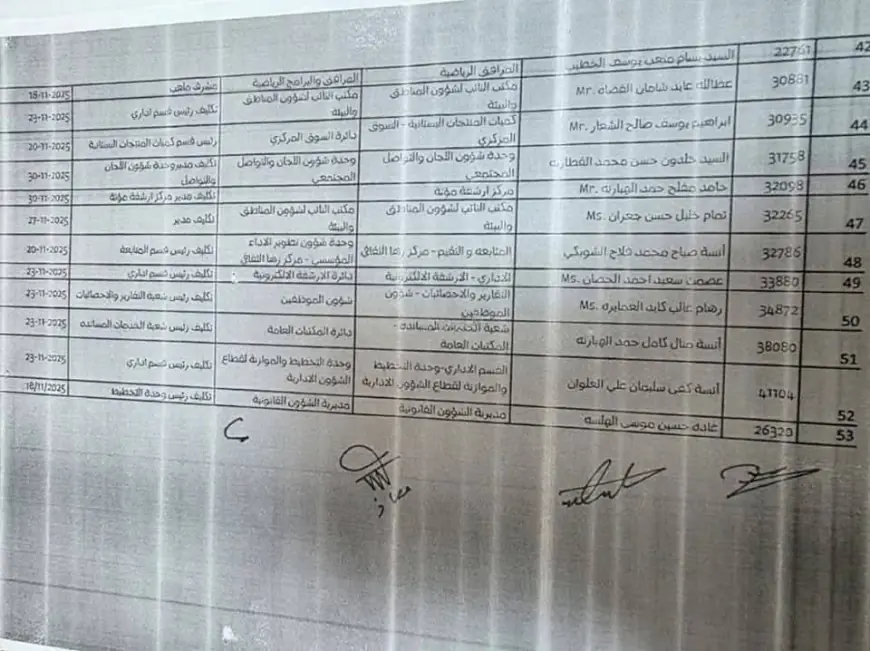 42 22761 السيد بسام متعب يوسف الخطيب المرافق الرياضية المرافق والبرامج الرياضية مشرف ملعب 18-11-2025
43 30881 Mr. عطالله عايد شامان القضاه مكتب النائب لشؤون المناطق والبيئة مكتب النائب لشؤون المناطق والبيئة تكليف رئيس قسم اداري 23-11-2025
44 30935 Mr. ابراهيم يوسف صالح الشعار كميات المنتجات البستانية - السوق المركزي دائرة السوق المركزي رئيس قسم كميات المنتجات البستانية 20-11-2025
45 31758 السيد خلدون حسن محمد القطارنه وحدة شؤون اللجان والتواصل المجتمعي وحدة شؤون اللجان والتواصل المجتمعي تكليف مدير وحدة شؤون اللجان والتواصل 30-11-2025
46 32098 Mr. حامد مفلح حمد الهبارنه مركز ارشفة مؤتة تكليف مدير مركز ارشفة مؤتة 30-11-2025
47 32265 Ms. تمام خليل حسن جعران مكتب النائب لشؤون المناطق والبيئة مكتب النائب لشؤون المناطق والبيئة تكليف مدير 27-11-2025
48 32786 آنسة صباح محمد فلاح الشوبكي المتابعه و التقيم - مركز زها الثقافي وحدة شؤون تطوير الاداء المؤسسي - مركز زها الثقافي تكليف رئيس قسم المتابعة 20-11-2025
49 33880 Ms. عصمت سعيد احمد الحصان الاداري - الارشفة الالكترونية دائرة الارشفة الالكترونية تكليف رئيس قسم اداري 23-11-2025
50 34872 Ms. رهام غالب كايد العمايره التقارير والاحصائيات - شؤون الموظفين شؤون الموظفين تكليف رئيس شعبة التقارير والاحصائيات 23-11-2025
51 38080 آنسة منال كامل حمد الهبارنه شعبة الخدمات المسانده - المكتبات العامة دائرة المكتبات العامة تكليف رئيس شعبة الخدمات المسانده 23-11-2025
52 41104 آنسة كفى سليمان علي العلوان القسم الاداري-وحدة التخطيط والموازنة لقطاع الشؤون الادارية وحدة التخطيط والموازنة لقطاع الشؤون الادارية تكليف رئيس قسم اداري 23-11-2025
53 26320 غاده حسين موسى الهلسه مديرية الشؤون القانونية مديرية الشؤون القانونية تكليف رئيس وحدة التخطيط 18/11/2025